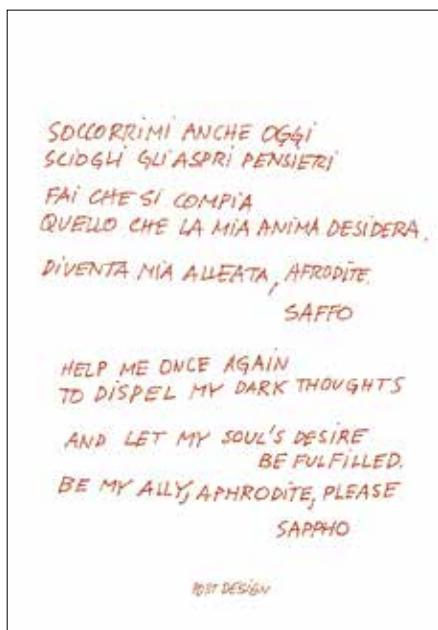 SOCCORRIMI ANCHE OGGI
SCIOGLI GLI ASPRI PENSIERI
FAI CHE SI COMPIA
QUELLO CHE LA MIA ANIMA DESIDERA.
DIVENTA MIA ALLEATA, AFRODITE.
SAFFO
HELP ME ONCE AGAIN
TO DISPEL MY DARK THOUGHTS
AND LET MY SOUL'S DESIRE
BE FULFILLED.
BE MY ALLY, APHRODITE, PLEASE
SAPPHO
POST DESIGN